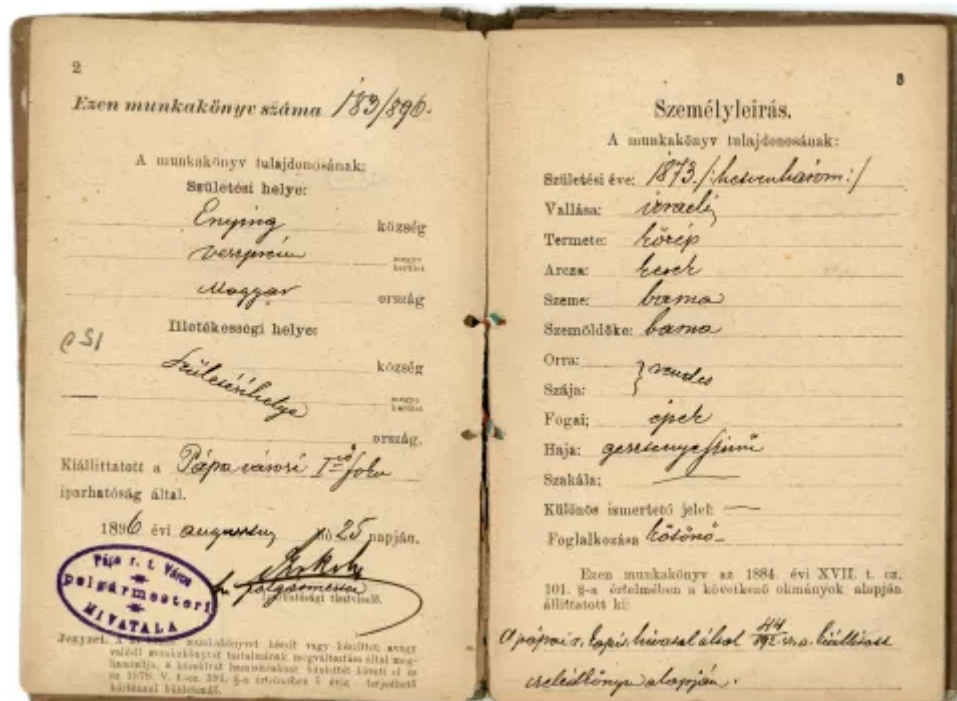 2
Ezen munkakönyv száma 183/896.
A munkakönyv tulajdonosának:
Születési helye:
Enying község
Veszprém megye kerület
Magyar ország
Illetékességi helye:
község
Születéshelye megye kerület
ország.
Kiállíttatott a Pápa városi I-ső fokú
iparhatóság által.
1896 évi augusztus hó 25 napján.
polgármester
iparhatósági tisztviselő.
Pápa r. t. Város
polgármesteri
HIVATALA
Jegyzet. A ki munkakönyvet készít vagy készíttet, avagy
valódi munkakönyvet tartalmának megváltoztatása által meg-
hamisítja, a közokirat hamisításának bűntettét követi el és
az 1878. V. t.-cz. 391. §-a értelmében 5 évig terjedhető
börtönnel büntetendő.
3
Személyleirás.
A munkakönyv tulajdonosának:
Születési éve: 1873. /:hetvenhárom:/
Vallása: izraeli
Termete: közép
Arcza: kerek
Szeme: barna
Szemöldöke: barna
Orra: } rendes
Szája:
Fogai; épek
Haja: gesztenyeszinü
Szakála: —
Különös ismertető jelei: —
Foglalkozása kötőnő
Ezen munkakönyv az 1884. évi XVII. t. cz.
101. §-a értelmében a következő okmányok alapján
állíttatott ki:
A pápai r. kapit. hivatal által 44 sz. a. kiállitott
cselédkönyv alapján.